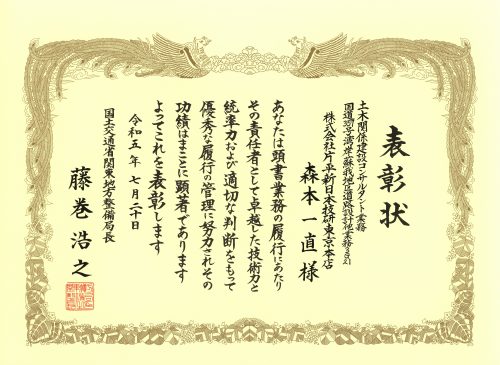 表彰状
土木関係建設コンサルタント業務
国道357号湾岸・蘇我地区道路設計他業務
株式会社片平新日本技研東京本店
森本一直様
あなたは頭書業務の履行にあたり
その責任者として卓越した技術力と
統率力および適切な判断をもって
優秀な履行の管理に努力されその
功績はまことに顕著であります
よってこれを表彰します
令和五年七月二十日
国土交通省関東地方整備局長
藤巻浩之